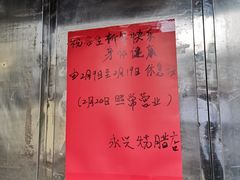 祝君新年快乐
身体健康
由2月9日至2月19日休息
(2月20日照常营业)
永兴烧腊店